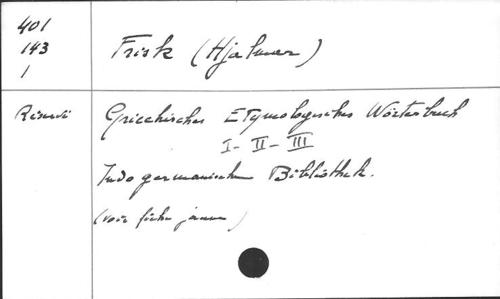 401
143
1
Frisk (Hjalmar)
Réservé
Griechisches Etymologisches Wörterbuch
I - II - III
Indogermanische Bibliothek.
(voir fiche jaune)